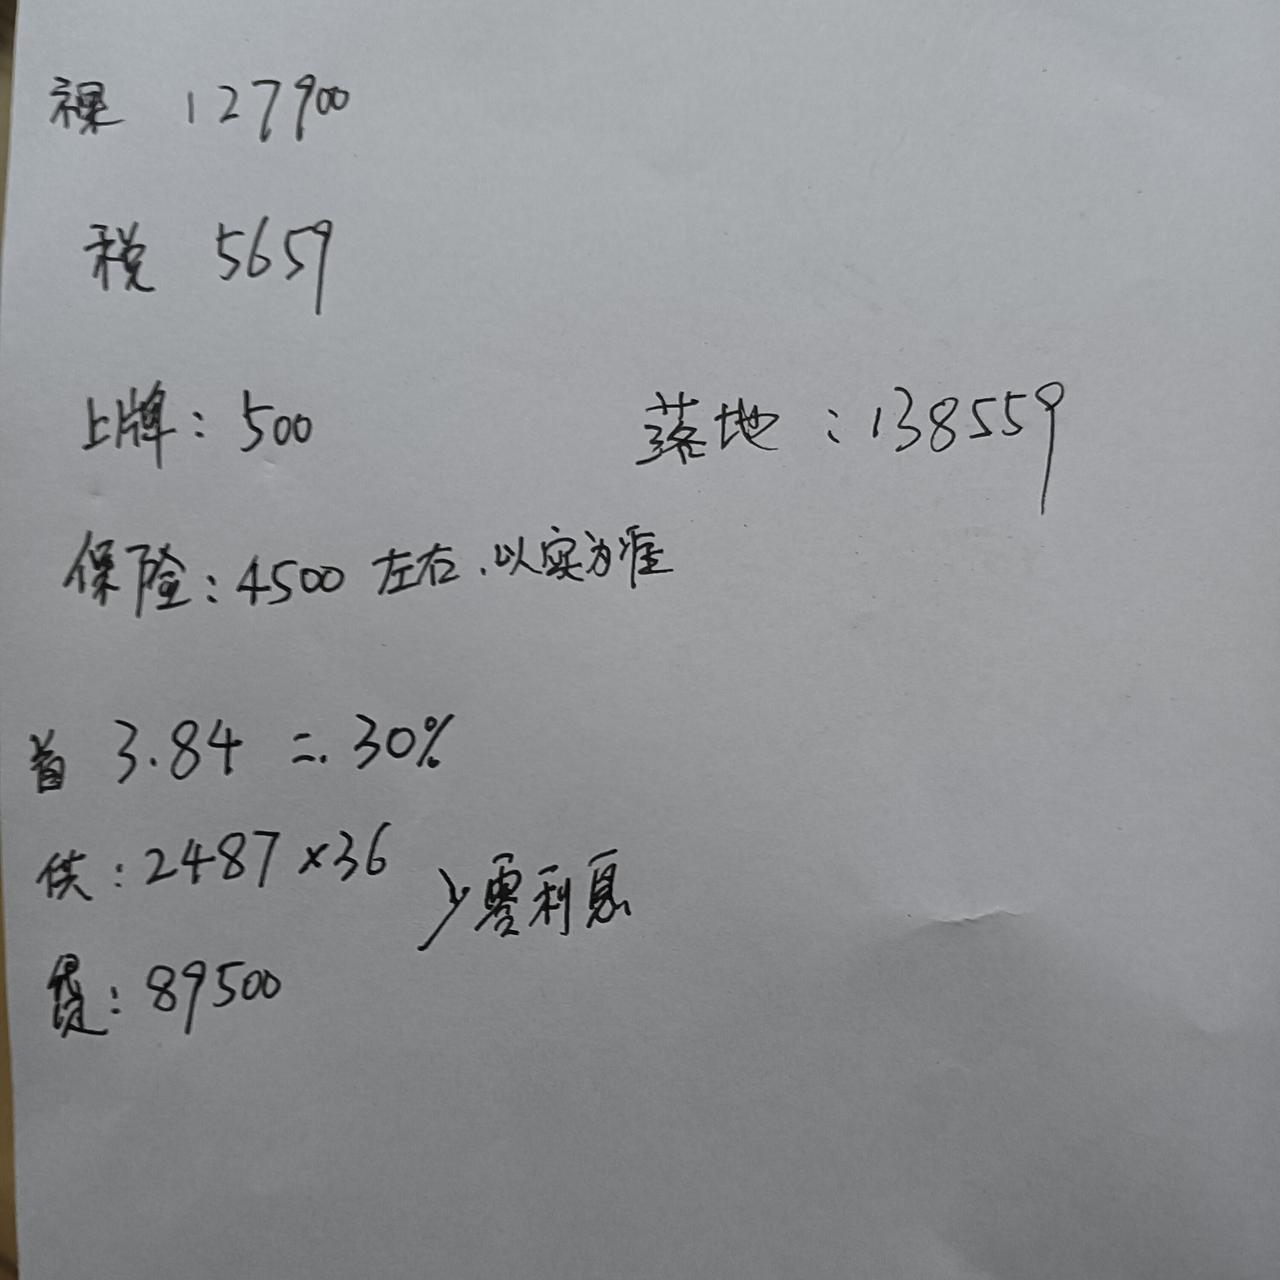 裸 127900
税 5659
上牌：500
落地：138559
保险：4500 左右、以实为准
首 3.84 = 30%
供：2487×36
零利息
贷：89500